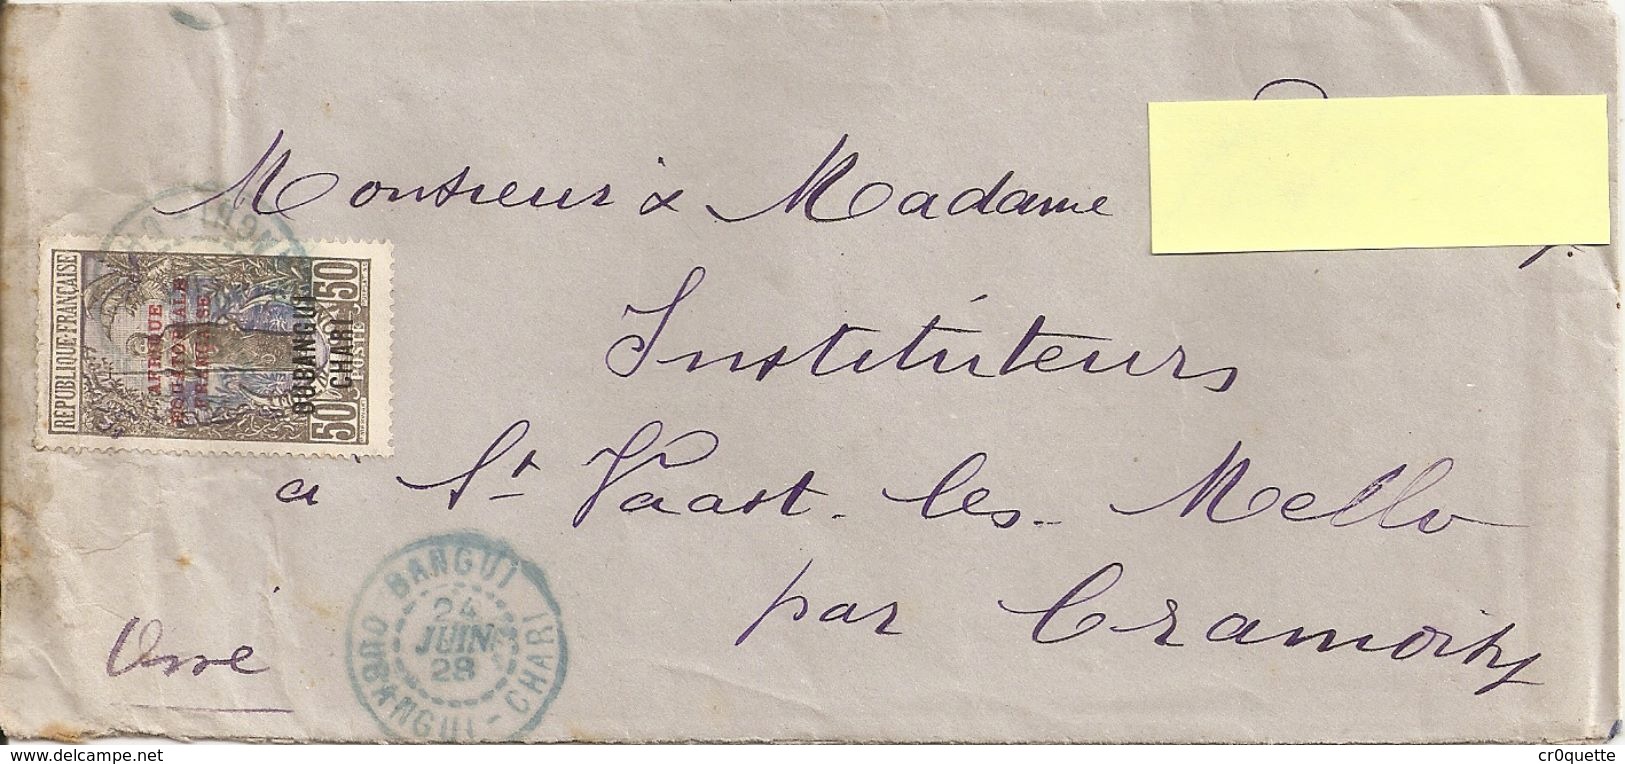 Monsieur & Madame
Instituteurs
à St Vaast-les-Mello
par Cramoisy
Oise
RÉPUBLIQUE FRANÇAISE
AFRIQUE
ÉQUATORIALE
FRANÇAISE
OUBANGUI
CHARI
50 POSTE 50
BANGUI
24
JUIN
28
OUBANGUI-CHARI
www.delcampe.net
cr0quette